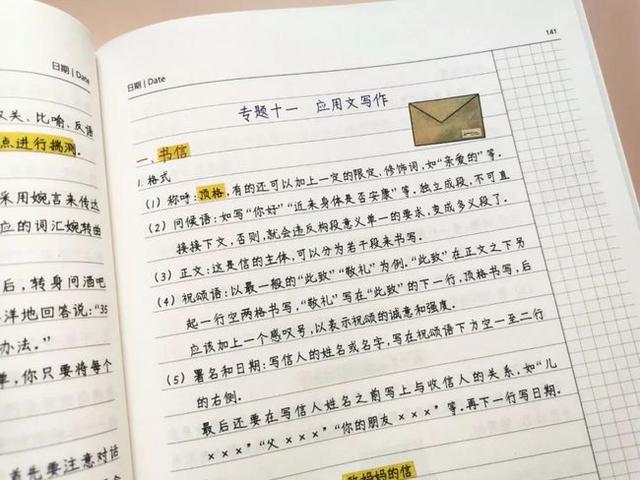 日期 | Date
双关、比喻、反语
点进行揣测.
采用婉言来传达
应的词汇婉转曲
后，转身问酒吧
洋地回答说：“35
办法.”
单，你只要将每个
首先要注意对话
141
日期 | Date
专题十一 应用文写作
一、书信
1. 格式
(1) 称呼：顶格，有的还可以加上一定的限定、修饰词，如“亲爱的”等.
(2) 问候语：如写“你好”“近来身体是否安康”等. 独立成段，不可直
接接下文，否则，就会违反构段意义单一的要求，变成多义段了.
(3) 正文：这是信的主体，可以分为若干段来书写.
(4) 祝颂语：以最一般的“此致”“敬礼”为例. “此致”在正文之下另
起一行空两格书写，“敬礼”写在“此致”的下一行，顶格书写，后
应该加上一个感叹号，以表示祝颂的诚意和强度.
(5) 署名和日期：写信人的姓名或名字，写在祝颂语下方空一至二行
的右侧.
最后还要在写信人姓名之前写上与收信人的关系，如“儿
×××”“父×××”“你的朋友×××”等. 再下一行写日期.
妈妈的信